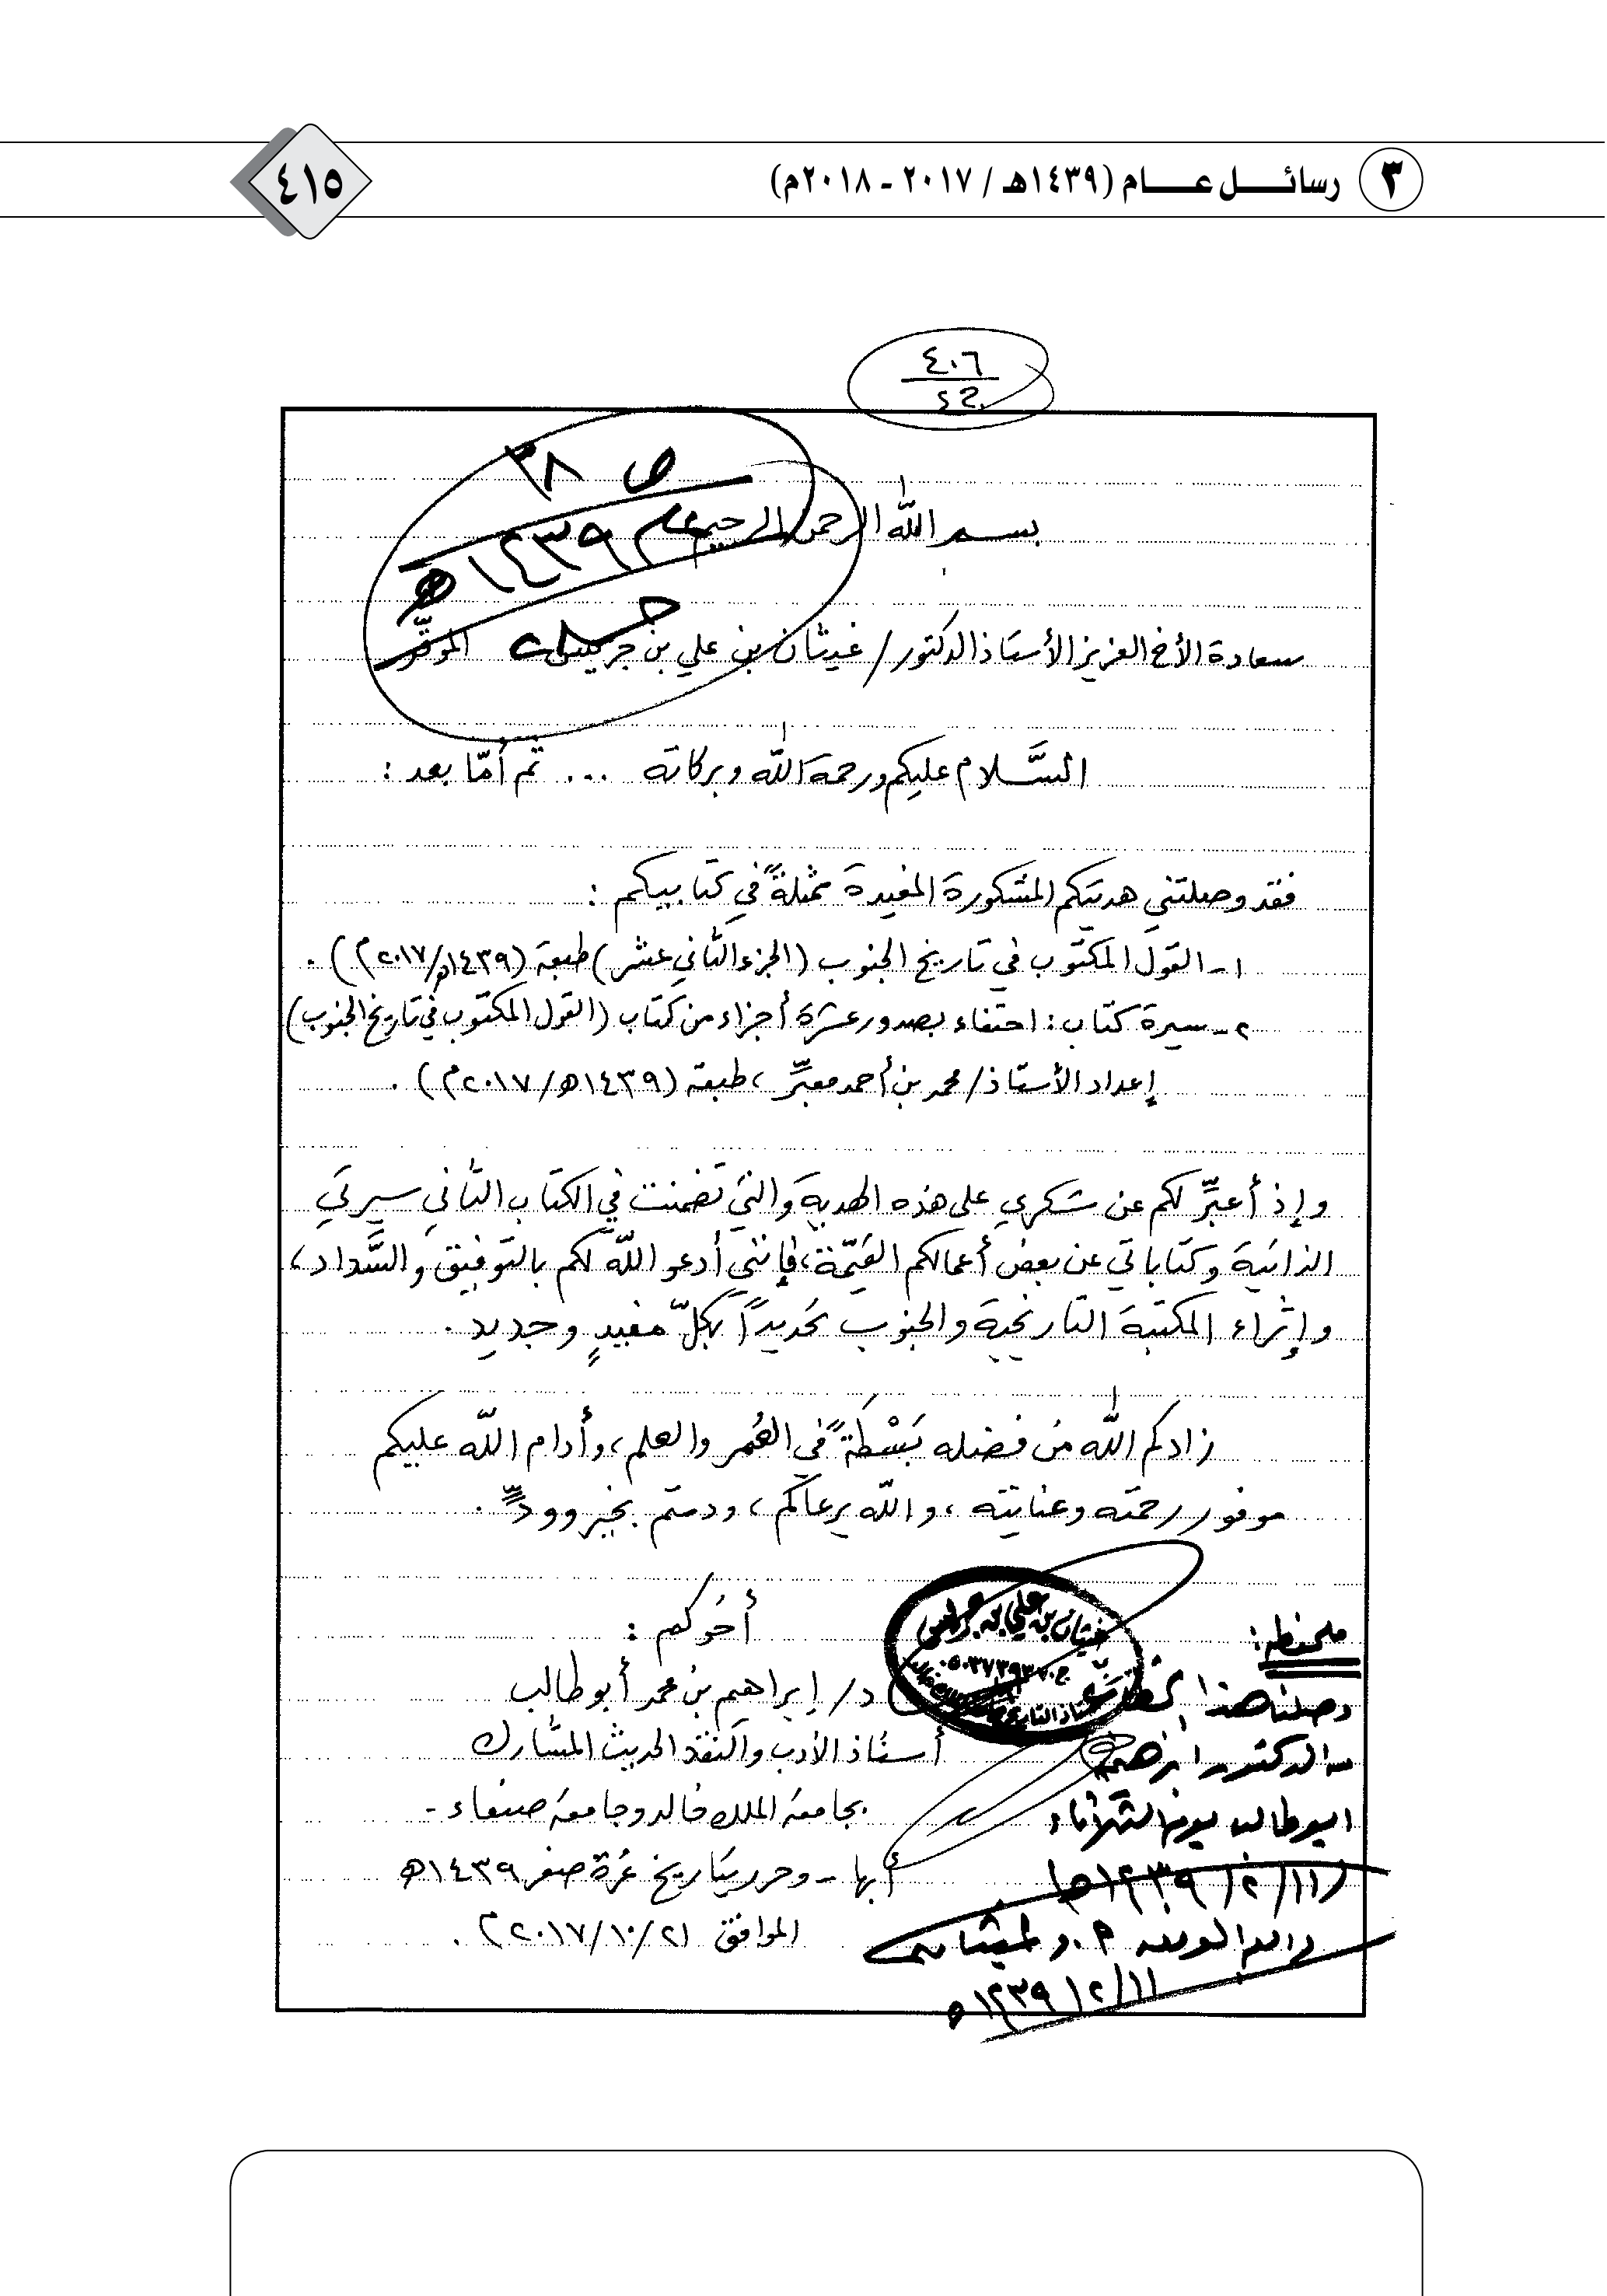 ٣ رسائل عام (١٤٣٩هـ / ٢٠١٧ - ٢٠١٨م)
٤١٥
٤٠٦
ص ٣٨
عام ١٤٣٩هـ
بسم الله الرحمن الرحيم
سعادة الأخ العزيز الأستاذ الدكتور / غيثان بن علي بن جريس الموقّر
السَّلام عليكم ورحمة الله وبركاته ... ثم أمّا بعد :
فقد وصلتني هديتكم المشكورة المفيدة ممثلةً في كتابيكم :
١- القول المكتوب في تاريخ الجنوب (الجزء الثاني عشر) طبعة (١٤٣٩هـ/٢٠١٧م) .
٢- سيرة كتاب : احتفاء بصدور عشرة أجزاء من كتاب (القول المكتوب في تاريخ الجنوب)
إعداد الأستاذ / محمد بن أحمد معبّر ، طبعة (١٤٣٩هـ / ٢٠١٧م) .
وإذ أعبِّر لكم عن شكري على هذه الهدية والتي تضمنت في الكتاب الثاني سيرتي
الذاتية وكتاباتي عن بعض أعمالكم القيّمة، فإنني أدعو الله لكم بالتوفيق والسَّداد ،
وإثراء المكتبة التاريخية والجنوب تحديداً بكلّ مفيدٍ وجديد .
زادكم الله من فضله بَسْطَةً في العُمر والعلم ، وأدام الله عليكم
موفور رحمته وعنايته ، والله يرعاكم ، ودمتم بخير وودٍّ .
أخوكم :
د/ إبراهيم بن محمد أبو طالب
أستاذ الأدب والنقد الحديث المشارك
بجامعة الملك خالد وجامعة صنعاء -
أبها - وحرر بتاريخ غرة صفر ١٤٣٩هـ
الموافق ٢١/١٠/٢٠١٧م .
غيثان بن علي بن جريس
ملحوظة :
وصلنا هذا الخطاب
من الدكتور ابراهيم
ابو طالب يوم الثلاثاء
١١/٢/١٤٣٩هـ
١١/٢/١٤٣٩هـ